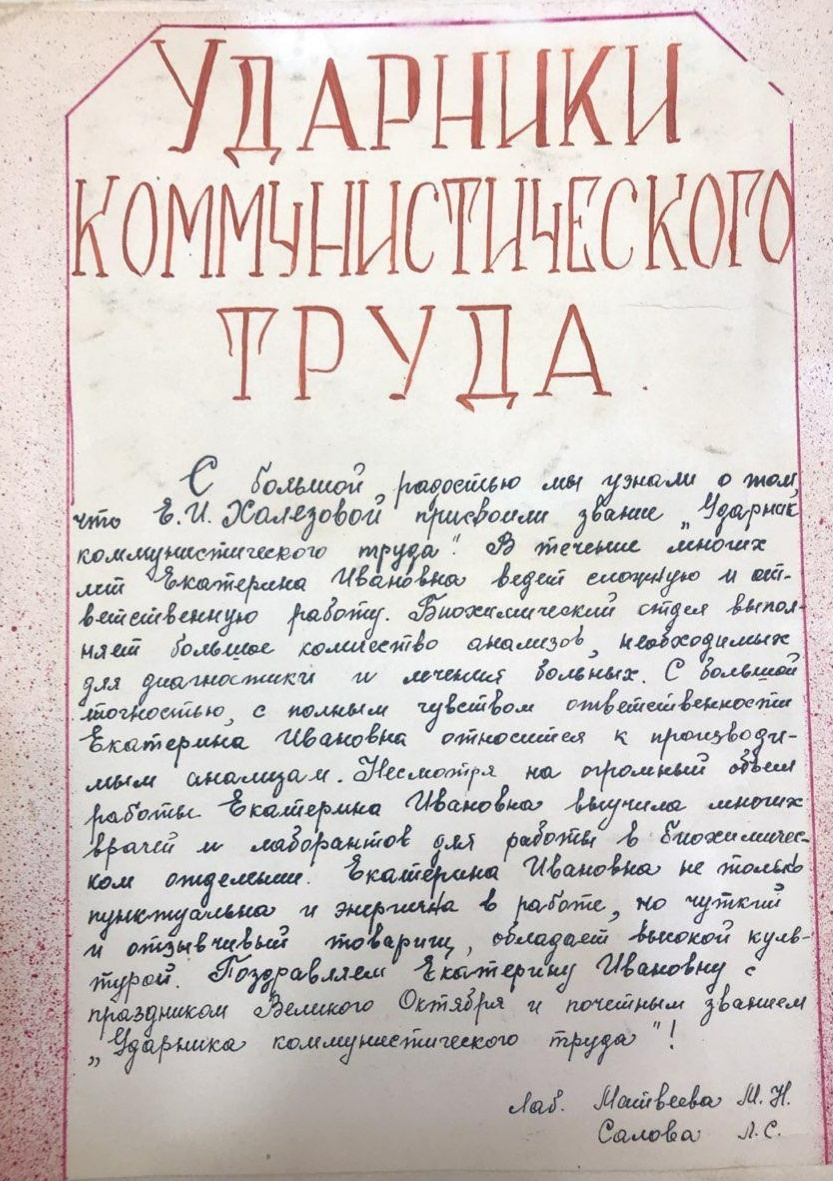 УДАРНИКИ
КОММУНИСТИЧЕСКОГО
ТРУДА.
С большой радостью мы узнали о том,
что Е.И. Халезовой присвоили звание „Ударник
коммунистического труда". В течение многих
лет Екатерина Ивановна ведет сложную и от-
ветственную работу. Биохимический отдел выпол-
няет большое количество анализов, необходимых
для диагностики и лечения больных. С большой
точностью, с полным чувством ответственности
Екатерина Ивановна относится к производи-
мым анализам. Несмотря на огромный объем
работы Екатерина Ивановна выучила многих
врачей и лаборантов для работы в биохимичес-
ком отделении. Екатерина Ивановна не только
пунктуальна и энергична в работе, но чуткий
и отзывчивый товарищ, обладает высокой куль-
турой. Поздравляем Екатерину Ивановну с
праздником Великого Октября и почетным званием
„Ударника коммунистического труда"!
Лаб. Матвеева М.Н.
Салова Л.С.